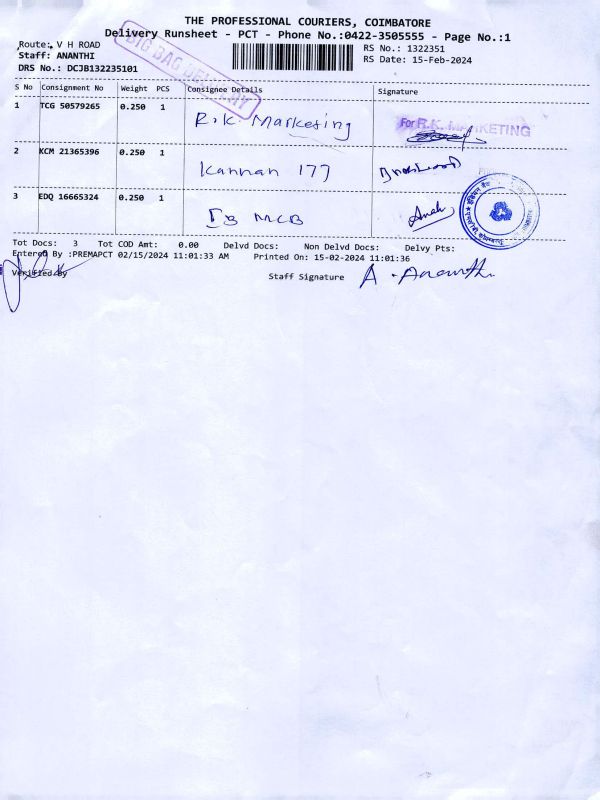 THE PROFESSIONAL COURIERS, COIMBATORE
Delivery Runsheet - PCT - Phone No.:0422-3505555 - Page No.:1
BIG BAG DELIVERY
Route: V H ROAD
Staff: ANANTHI
DRS No.: DCJB132235101
RS No.: 1322351
RS Date: 15-Feb-2024
S No Consignment No Weight PCS Consignee Details Signature
1 TCG 50579265 0.250 1 R.K. Marketing For R.K. MARKETING
2 KCM 21365396 0.250 1 Kannan 177
3 EDQ 16665324 0.250 1 IB MCB
Tot Docs: 3 Tot COD Amt: 0.00 Delvd Docs: Non Delvd Docs: Delvy Pts:
Entered By :PREMAPCT 02/15/2024 11:01:33 AM Printed On: 15-02-2024 11:01:36
Verified By Staff Signature A. Ananthi